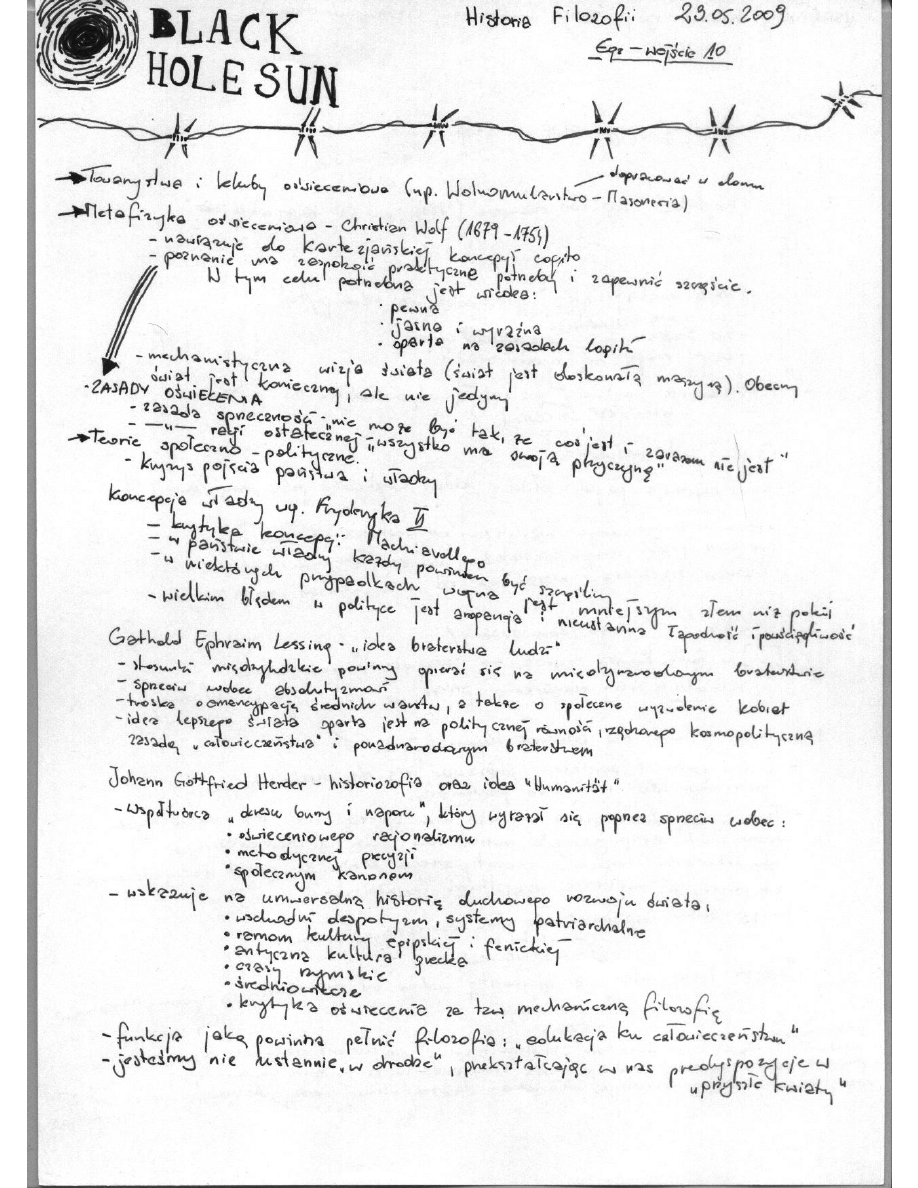 BLACK
HOLE SUN
Historia Filozofii 23.05.2009
Egz – wejście 10
dopracować w domu
Towarzystwa i kluby oświeceniowe (np. Wolnomularstwo – Masoneria)
Metafizyka oświeceniowa – Christian Wolf (1679 – 1754)
- nawiązuje do kartezjańskiej koncepcji cogito
- poznanie ma zaspokoić praktyczne potrzeby i zapewnić szczęście.
W tym celu potrzebna jest wiedza:
· pewna
· jasna i wyraźna
· oparta na zasadach logiki
- mechanistyczna wizja świata (świat jest doskonałą maszyną). Obecny
świat jest konieczny, ale nie jedyny
- ZASADY OŚWIECENIA
- zasada sprzeczność - "nie może być tak, że coś jest i zarazem nie jest"
- —"— racji ostatecznej - "wszystko ma swoją przyczynę"
Teorie społeczno - polityczne.
- kryzys pojęcia państwa i władzy
Koncepcja władzy wg. Fryderyka II
- krytyka koncepcji Machiavellego
- w państwie władzy każdy powinien być szczęśliwy
- w niektórych przypadkach wojna jest mniejszym złem niż pokój
- wielkim błędem w polityce jest arogancja i nieustanna łagodność i powściągliwość
Gathold Ephraim Lessing - "idea braterstwa ludzi"
- stosunki międzyludzkie powinny opierać się na międzynarodowym braterstwie
- sprzeciw wobec absolutyzmowi
- troska o emancypację średnich warstw, a także o społeczne wyzwolenie kobiet
- idea lepszego świata oparta jest na politycznej równość, rządzonego kosmopolityczną
zasadą "człowieczeństwa" i ponadnarodowym braterstwem
Johann Gottfried Herder - historiozofia oraz idea "Humanität"
- współtwórca "okresu burzy i naporu", który wyrażał się poprzez sprzeciw wobec:
· oświeceniowego racjonalizmu
· metodycznej precyzji
· społecznym kanonem
- wskazuje na uniwersalną historię duchowego rozwoju świata:
· wschodni despotyzm, systemy patriarchalne
· ramom kultury egipskiej i fenickiej
· antyczna kultura grecka
· czasy rzymskie
· średniowiecze
· krytyka oświecenia za tzw mechaniczną filozofię
- funkcja jaką powinna pełnić filozofia: "edukacja ku człowieczeństwu"
- jesteśmy nie ustannie "w drodze", przekształcając w nas predyspozycje w
"przyszłe kwiaty"